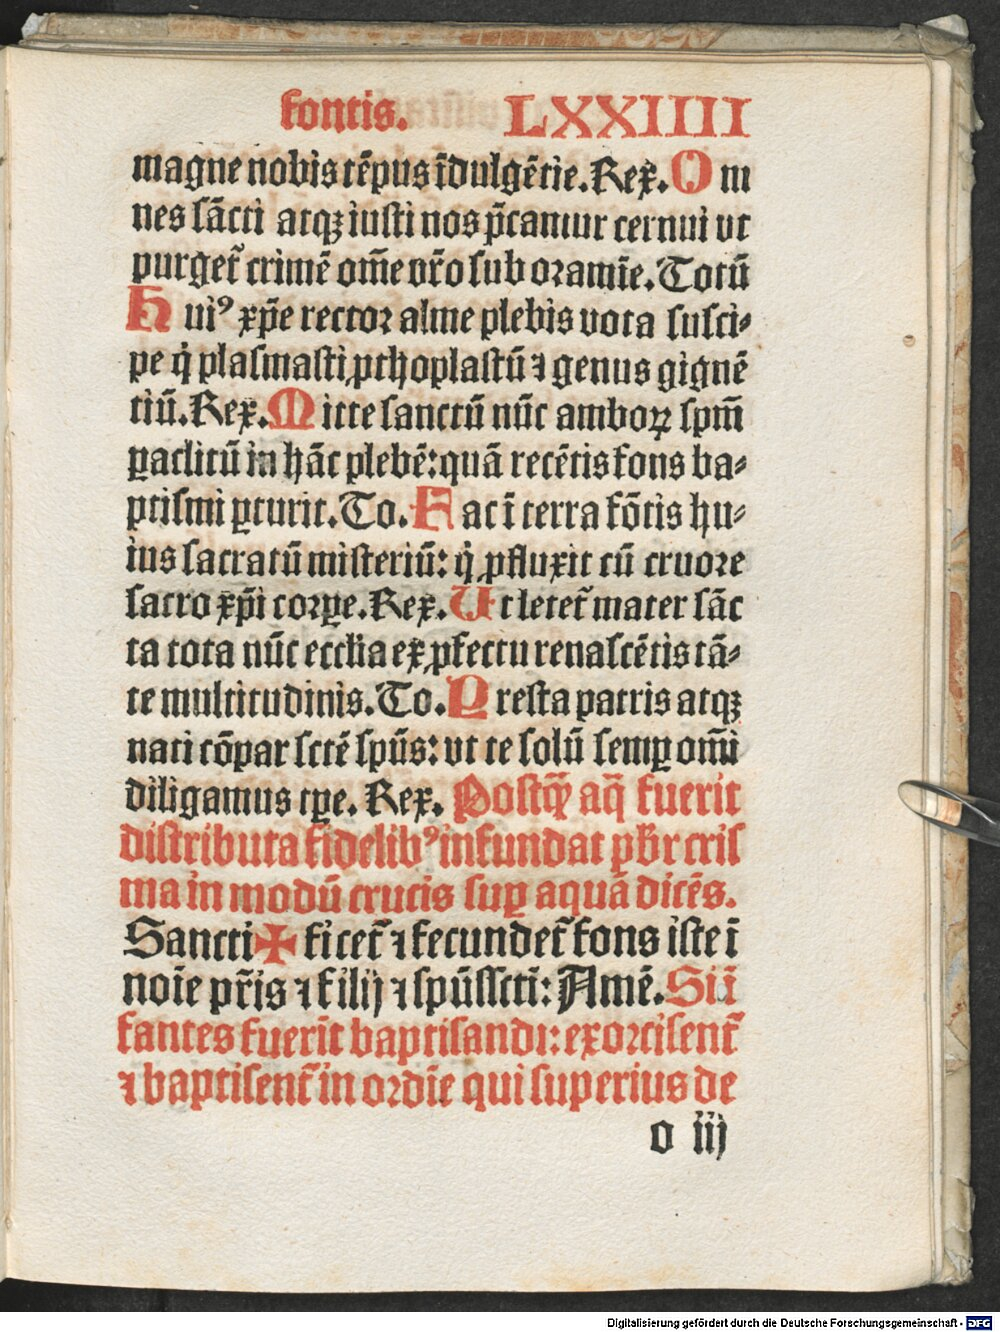 fontis. LXXIIII
magne nobis tẽpus ĩdulgẽtie. Rex. O m
nes sãcti atqꝫ iusti nos p̃camur cernui vt
purget᷑ crimẽ om̃e nr̃o sub oramĩe. Totũ
H uiꝰ xp̃e rector alme plebis vota susci⸗
pe q̇ plasmasti ꝓthoplastũ ⁊ genus gignẽ
tiũ. Rex. M itte sanctũ nũc amboꝝ sp̃m
ꝑaclitũ in hãc plebẽ: quã recẽtis fons ba⸗
ptismi ꝑturit. To. F ac ĩ terra fõtis hu⸗
ius sacratũ misteriũ: q̇ ꝓfluxit cũ cruore
sacro xp̃i corꝑe. Rex. U t letet᷑ mater sãc
ta tota nũc ecclia ex ꝓfectu renascẽtis tã⸗
te multitudinis. To. P resta patris atqꝫ
nati cõpar sctẽ spũs: vt te solũ semꝑ om̃i
diligamus tꝑe. Rex. Postqꝫ̃ aq̃ fuerit
distributa fidelibꝰ infundat p̱br cris
ma in modũ crucis suꝑ aquã dicẽs.
Sancti ✠ ficet᷑ ⁊ fecundet᷑ fons iste ĩ
noĩe pr̃is ⁊ filij ⁊ spũssctĩ: Amẽ. Si ĩ
fantes fuerĩt baptisandi: exorcisent᷑
⁊ baptisent᷑ in ordĩe qui superius de
o iij
Digitalisierung gefördert durch die Deutsche Forschungsgemeinschaft - DFG